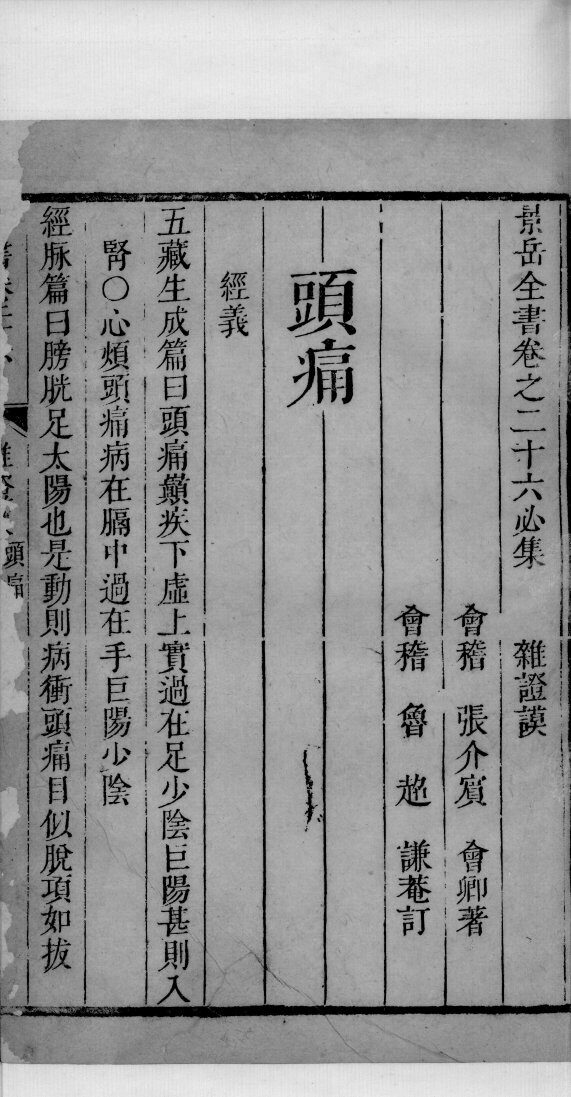 景岳全書卷之二十六必集 雜證謨
會稽 張介賓 會卿著
會稽 魯超 謙菴訂
頭痛
經義
五藏生成篇曰頭痛巔疾下虛上實過在足少陰巨陽甚則入
腎○心煩頭痛病在膈中過在手巨陽少陰
經脉篇曰膀胱足太陽也是動則病衝頭痛目似脫項如拔
頭痛